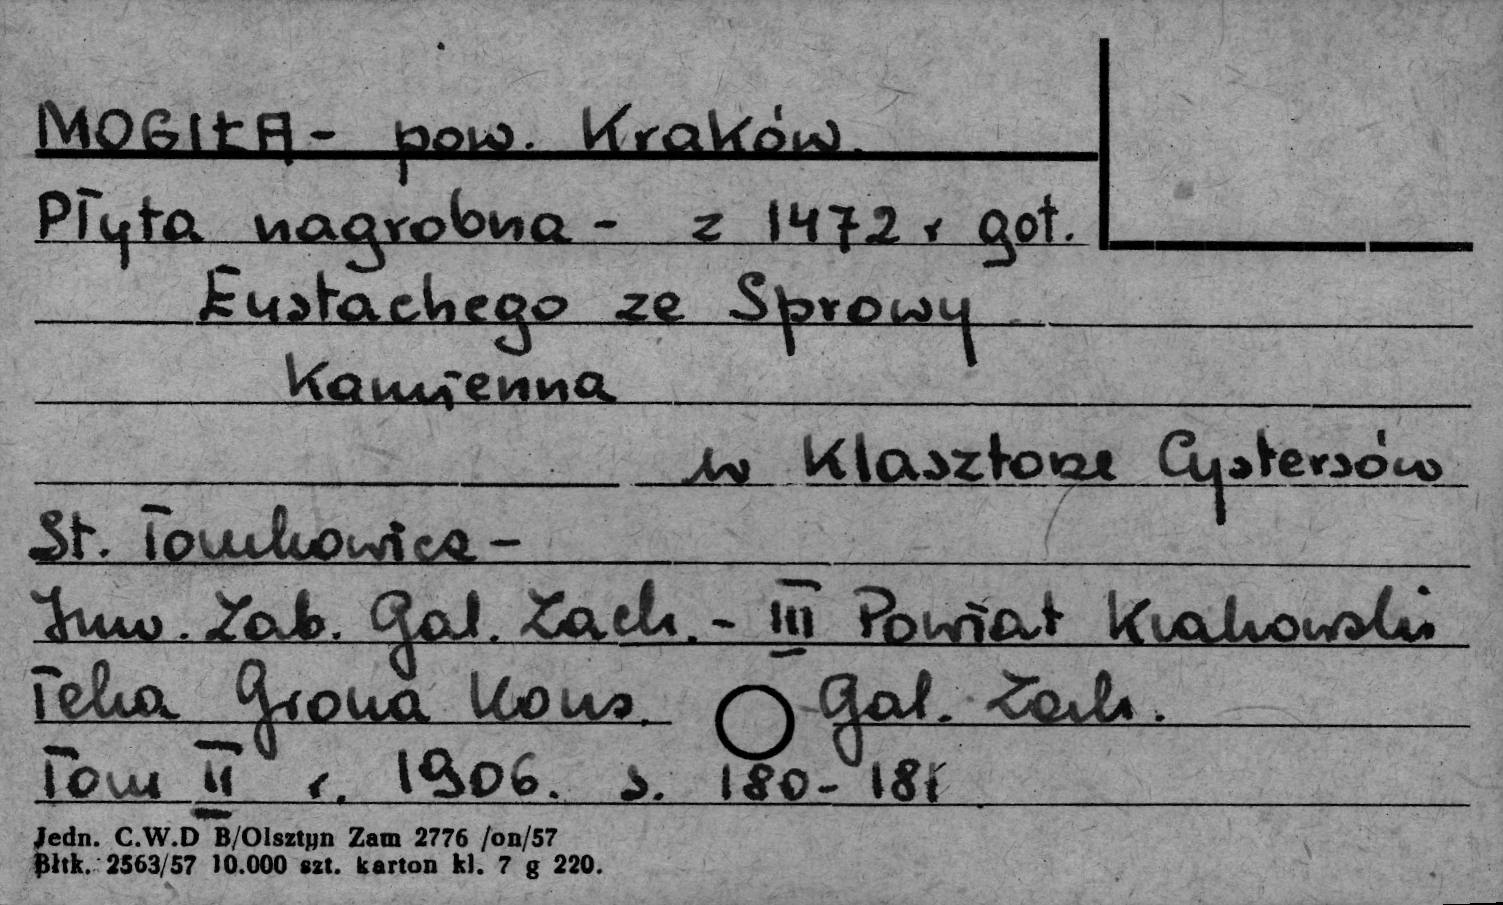 MOGIŁA - pow. Kraków.
Płyta nagrobna - z 1472 r got.
Eustachego ze Sprowy
Kamienna
w Klasztorze Cystersów
St. Tomkowicz -
Inw. Zab. Gal. Zach. - III Powiat Krakowski
Teka Grona Kons. Gal. Zach.
Tom II r. 1906. s. 180-181
Jedn. C.W.D B/Olsztyn Zam 2776 /on/57
Błtk. 2563/57 10.000 szt. karton kl. 7 g 220.